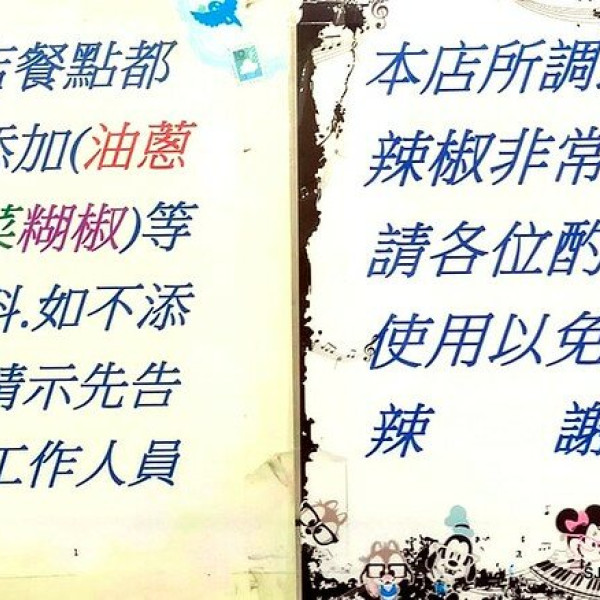 店餐點都
添加(油蔥
菜糊椒)等
料.如不添
請示先告
工作人員
1
本店所調
辣椒非常
請各位酌
使用以免
辣 謝